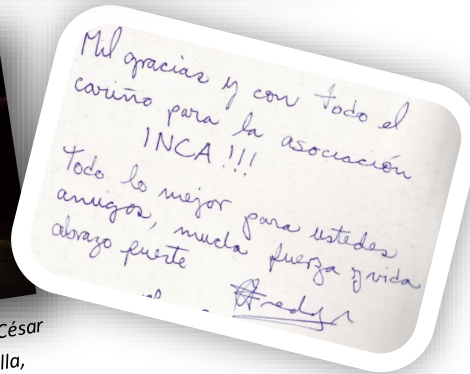 Mil gracias y con todo el
cariño para la asociación
INCA !!!
Todo lo mejor para ustedes
amigos, mucha fuerza y vida
abrazo fuerte
Fredy
César
lla,